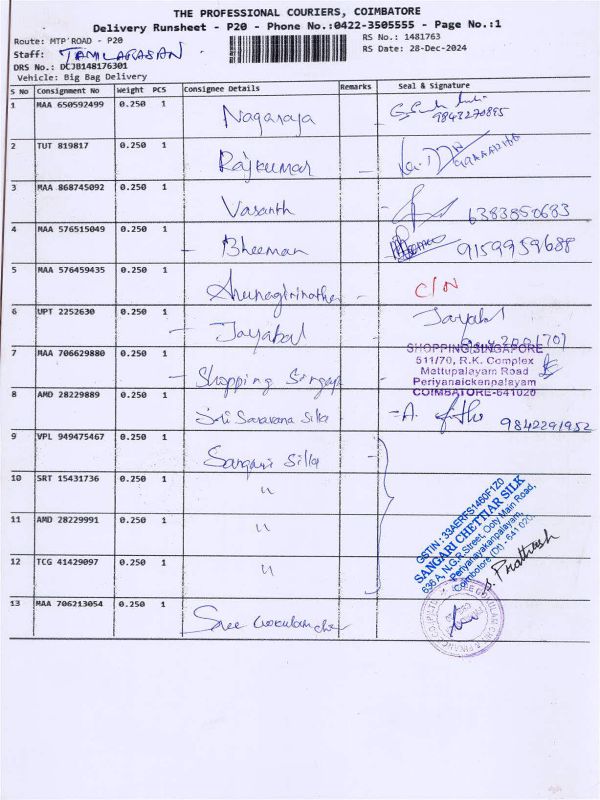 THE PROFESSIONAL COURIERS, COIMBATORE
Delivery Runsheet - P20 - Phone No.:0422-3505555 - Page No.:1
Route: MTP ROAD - P20
RS No.: 1481763
Staff: TAMILARASAN
RS Date: 28-Dec-2024
DRS No.: DCJB148176301
Vehicle: Big Bag Delivery
S No Consignment No Weight PCS Consignee Details Remarks Seal & Signature
1 MAA 650592499 0.250 1 Nagaraja
2 TUT 819817 0.250 1 Rajkumar
3 MAA 868745092 0.250 1 Vasanth 6383850683
4 MAA 576515049 0.250 1 Bheeman 9159959688
5 MAA 576459435 0.250 1 C/N
6 UPT 2252630 0.250 1 Jayabal Jayabal
7 MAA 706629880 0.250 1 Shopping
SHOPPING SINGAPORE
511/70, R.K. Complex
Mettupalayam Road
Periyanaickenpalayam
COIMBATORE-641020
8 AMD 28229889 0.250 1 Sri Saravana Silks 9842291952
9 VPL 949475467 0.250 1 Sangari Silks
10 SRT 15431736 0.250 1 "
11 AMD 28229991 0.250 1 "
12 TCG 41429097 0.250 1 "
GSTIN : 33AERFS1460F1Z0
SANGARI CHETTIAR SILK
636 A, N.G.R.Street, Ooty Main Road,
Periyanayakanpalayam,
Coimbatore (Dt) - 641 020.
P. Pratheesh
13 MAA 706213054 0.250 1 Sree